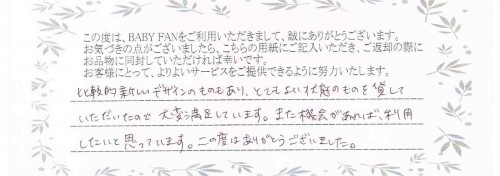 この度は、BABY FANをご利用いただきまして、誠にありがとうございます。
お気づきの点がございましたら、こちらの用紙にご記入いただき、ご返却の際に
お品物に同封していただければ幸いです。
お客様にとって、よりよいサービスをご提供できるように努力いたします。
比較的新しいデザインのものもあり、とてもよい状態のものを貸して
いただいたので 大変満足しています。また機会があれば、利用
したいと思っています。この度はありがとうございました。